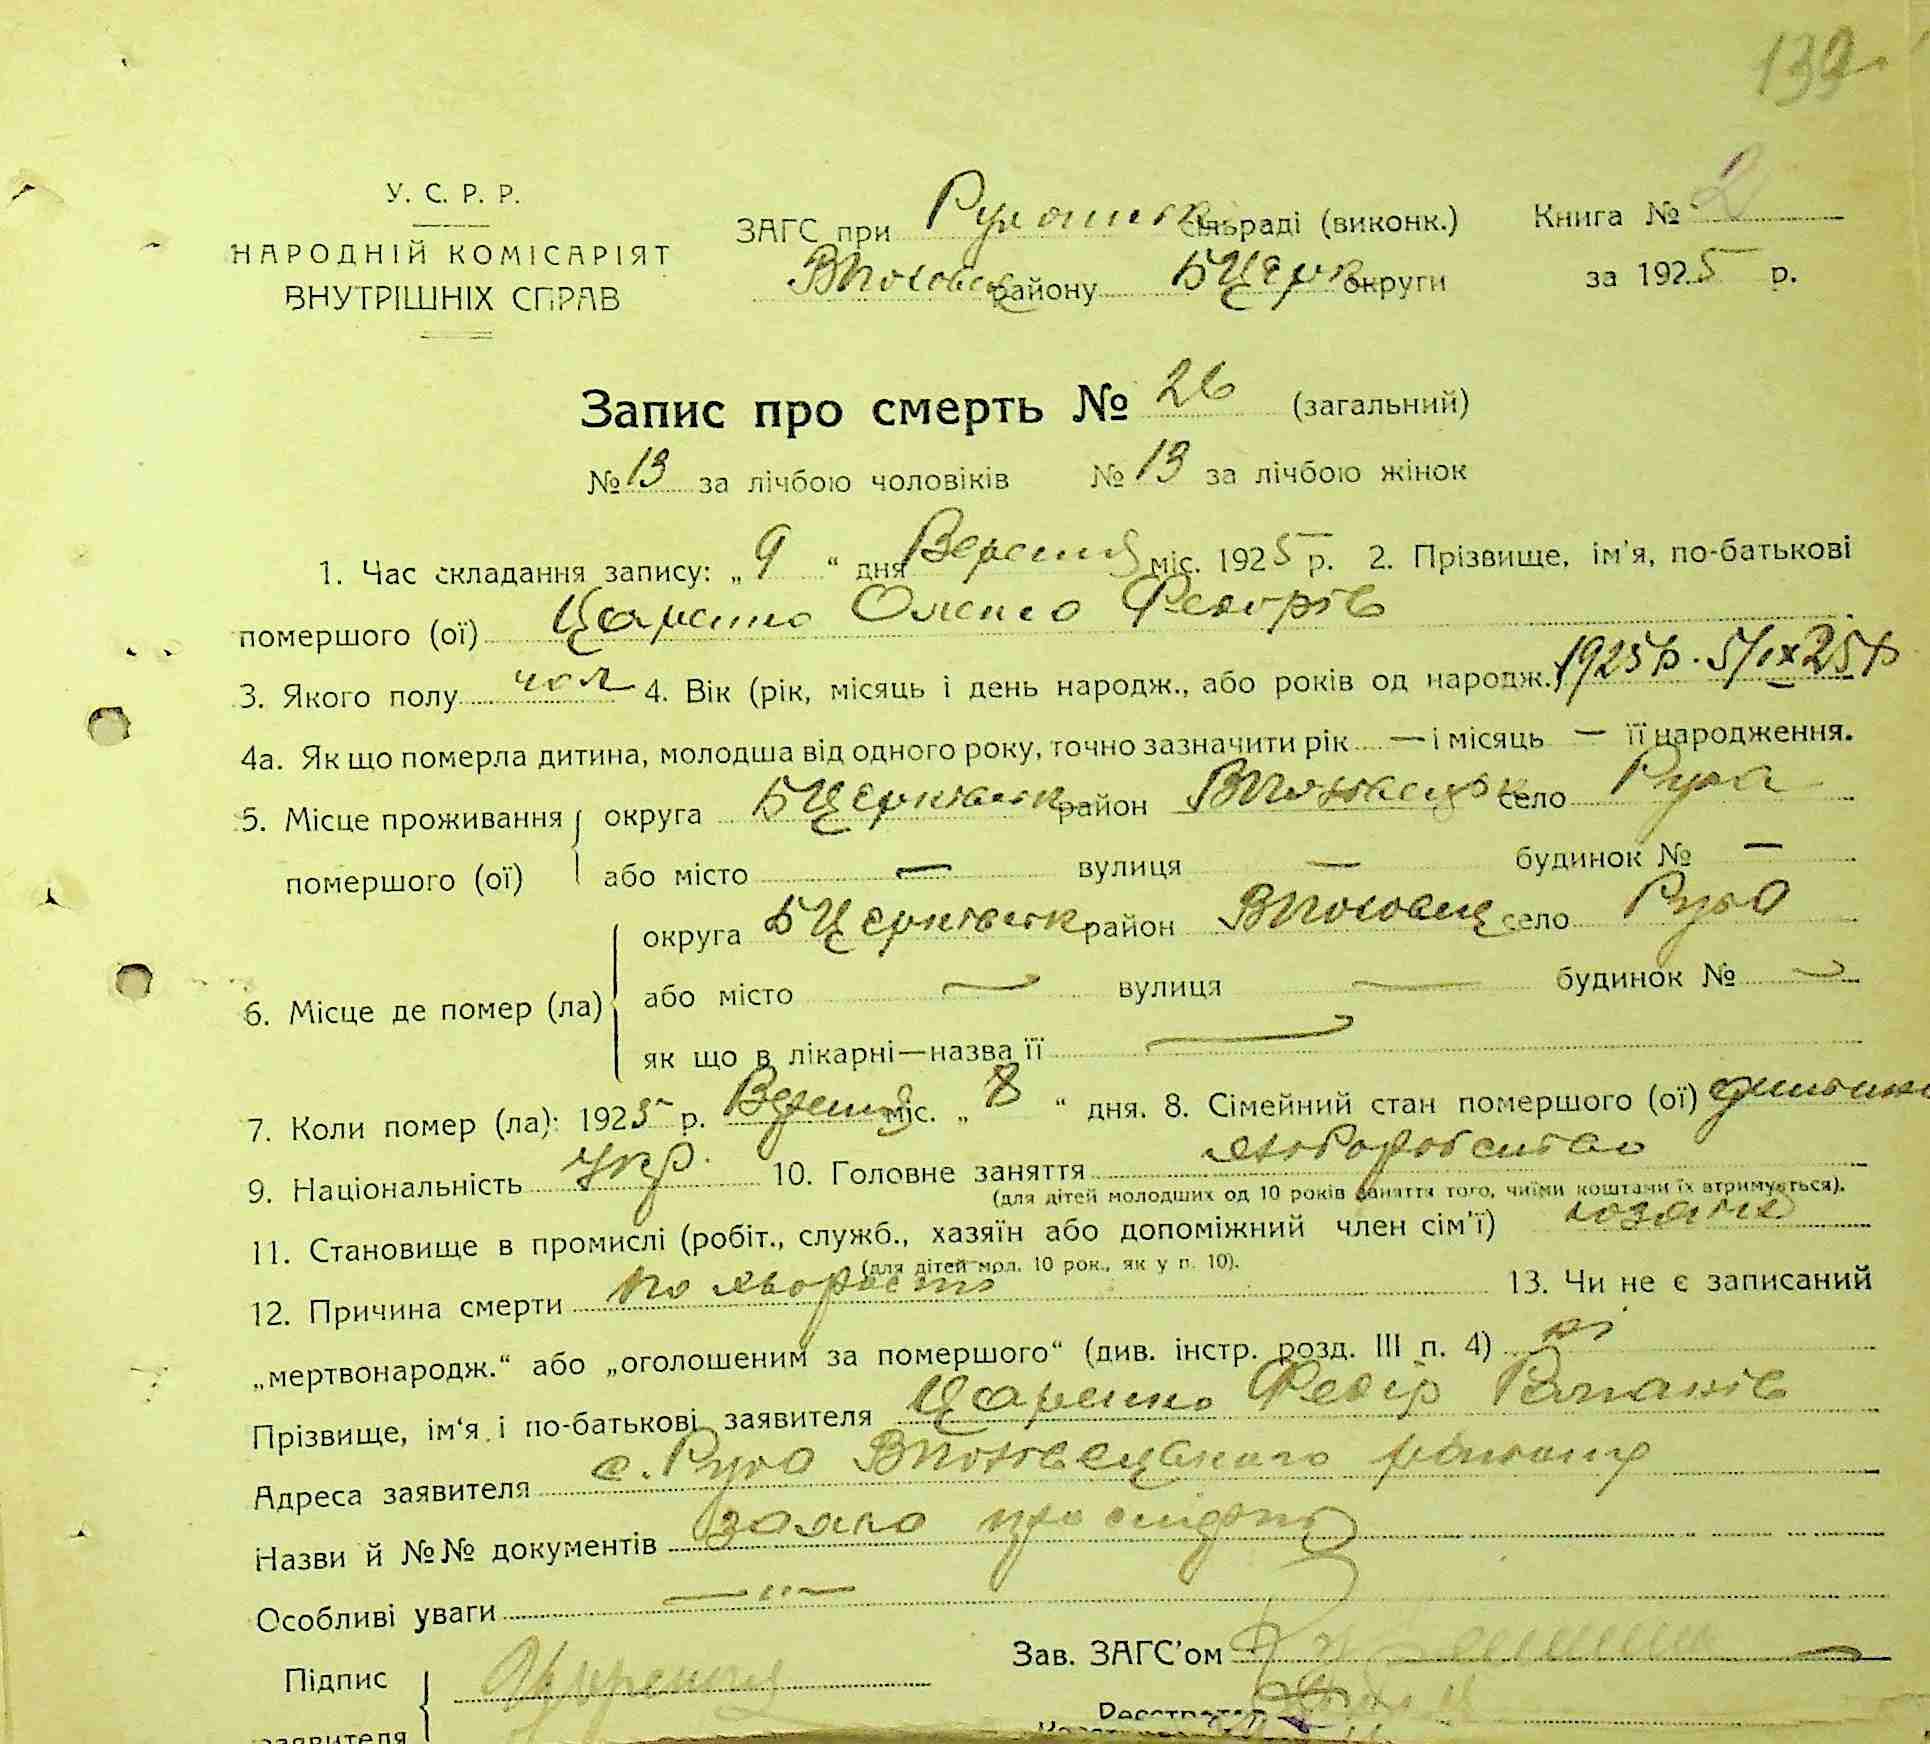 132
У. С. Р. Р.
НАРОДНІЙ КОМІСАРІЯТ
ВНУТРІШНІХ СПРАВ
ЗАГС при сільраді (виконк.)
району БЦерк округи
Книга № 2
за 1925 р.
Запис про смерть № 26 (загальний)
№ 13 за лічбою чоловіків № 13 за лічбою жінок
1. Час складання запису: „ 9 “ дня Вересня міс. 1925 р. 2. Прізвище, ім'я, по-батькові
помершого (ої) Царенко Федорів
3. Якого полу чол 4. Вік (рік, місяць і день народж., або років од народж.) 1925р. 5/ІХ 25р
4а. Як що померла дитина, молодша від одного року, точно зазначити рік — і місяць — її народження.
5. Місце проживання округа БЦерківськ район село Руда
помершого (ої) або місто — вулиця — будинок № —
округа БЦерківськ район село Руда
6. Місце де помер (ла) або місто — вулиця — будинок № —
як що в лікарні—назва її —
7. Коли помер (ла): 1925 р. Вересня міс. „ 8 “ дня. 8. Сімейний стан помершого (ої)
9. Національність Укр. 10. Головне заняття хліборобство
(для дітей молодших од 10 років заняття того, чиїми коштами їх втримується).
11. Становище в промислі (робіт., служб., хазяїн або допоміжний член сім'ї)
(для дітей мол. 10 рок., як у п. 10).
12. Причина смерти по хворости 13. Чи не є записаний
„мертвонародж.“ або „оголошеним за помершого“ (див. інстр. розд. III п. 4) ні
Прізвище, ім‘я і по-батькові заявителя Царенко Федір
Адреса заявителя с. Руда району
Назви й №№ документів заява про смерть
Особливі уваги — " —
Зав. ЗАГС'ом
Підпис
заявителя
Реєстратор